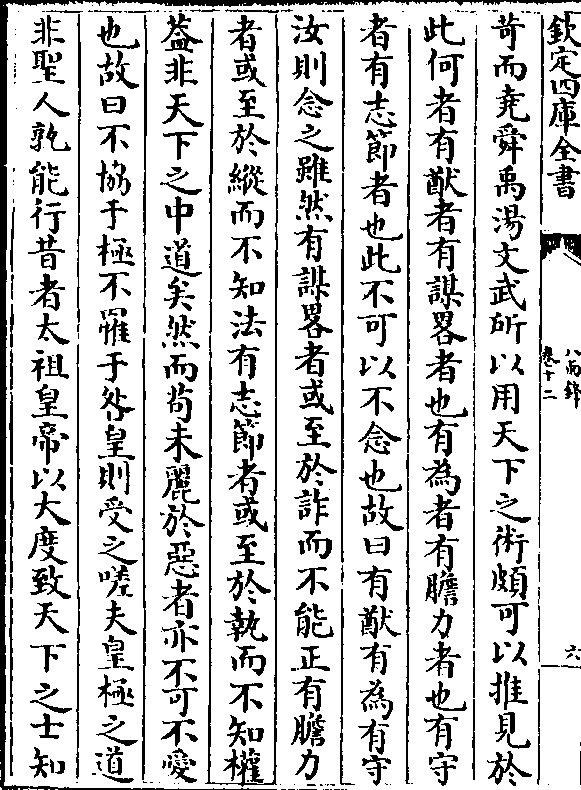 欽定四庫全書
八面鋒
卷十二
六
苛而堯舜禹湯文武所以用天下之術頗可以推見於
此何者有猷者有謀畧者也有為者有膽力者也有守
者有志節者也此不可以不念也故曰有猷有為有守
汝則念之雖然有謀畧者或至於詐而不能正有膽力
者或至於縱而不知法有志節者或至於執而不知權
葢非天下之中道矣然而茍未麗於惡者亦不可不愛
也故曰不協于極不罹于咎皇則受之嗟夫皇極之道
非聖人孰能行昔者太祖皇帝以大度致天下之士知